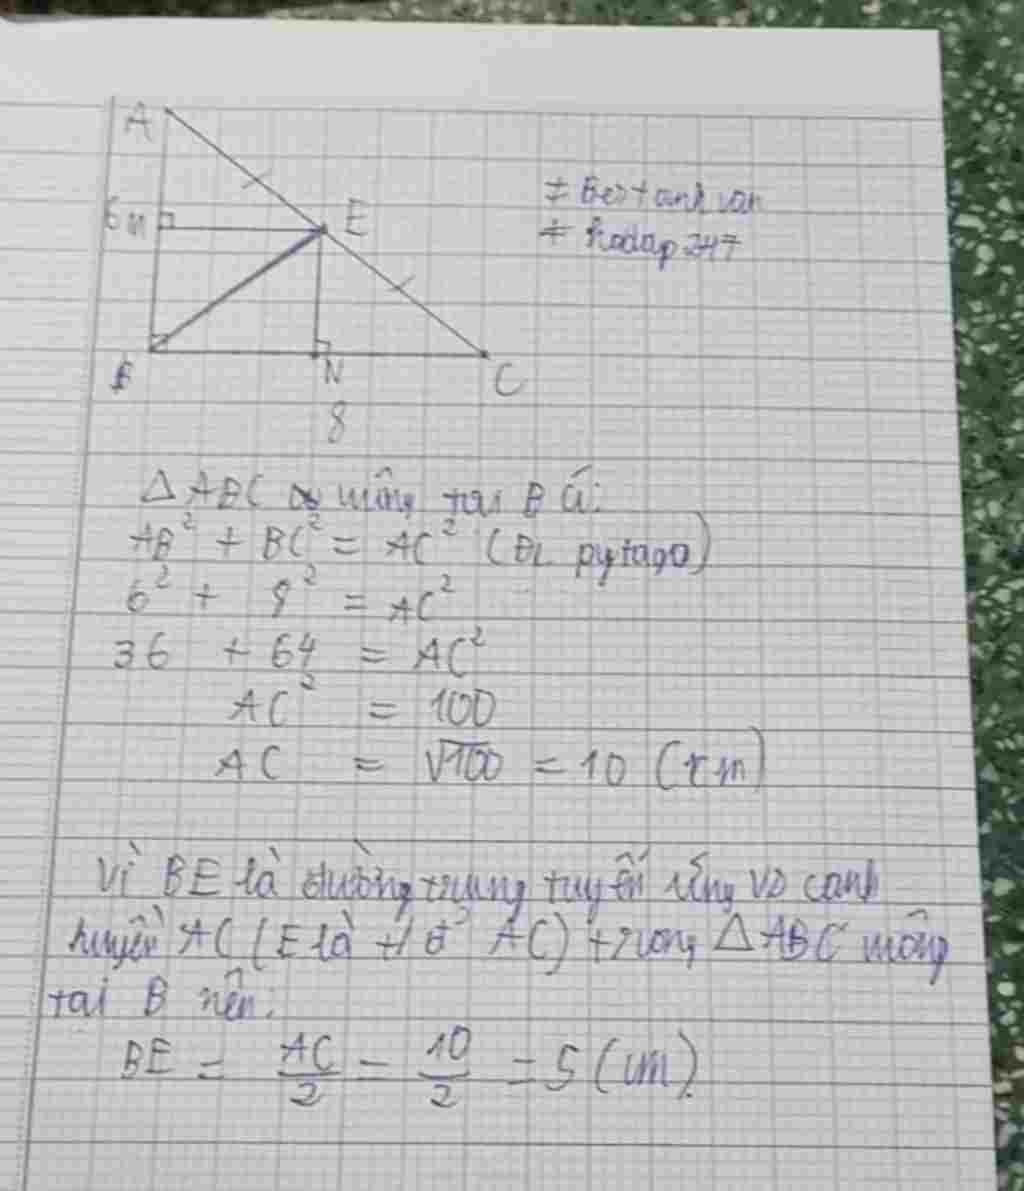 A
6 M
E
B
N
C
8
# Bestanh van
# hodap 247
Δ ABC vuông tại B có:
AB² + BC² = AC² (ĐL pytago)
6² + 8² = AC²
36 + 64 = AC²
AC² = 100
AC = √100 = 10 (cm)
Vì BE là đường trung tuyến ứng vs cạnh
huyền AC (E là tđ AC) trong Δ ABC vuông
tại B nên:
BE = AC/2 = 10/2 = 5 (cm).